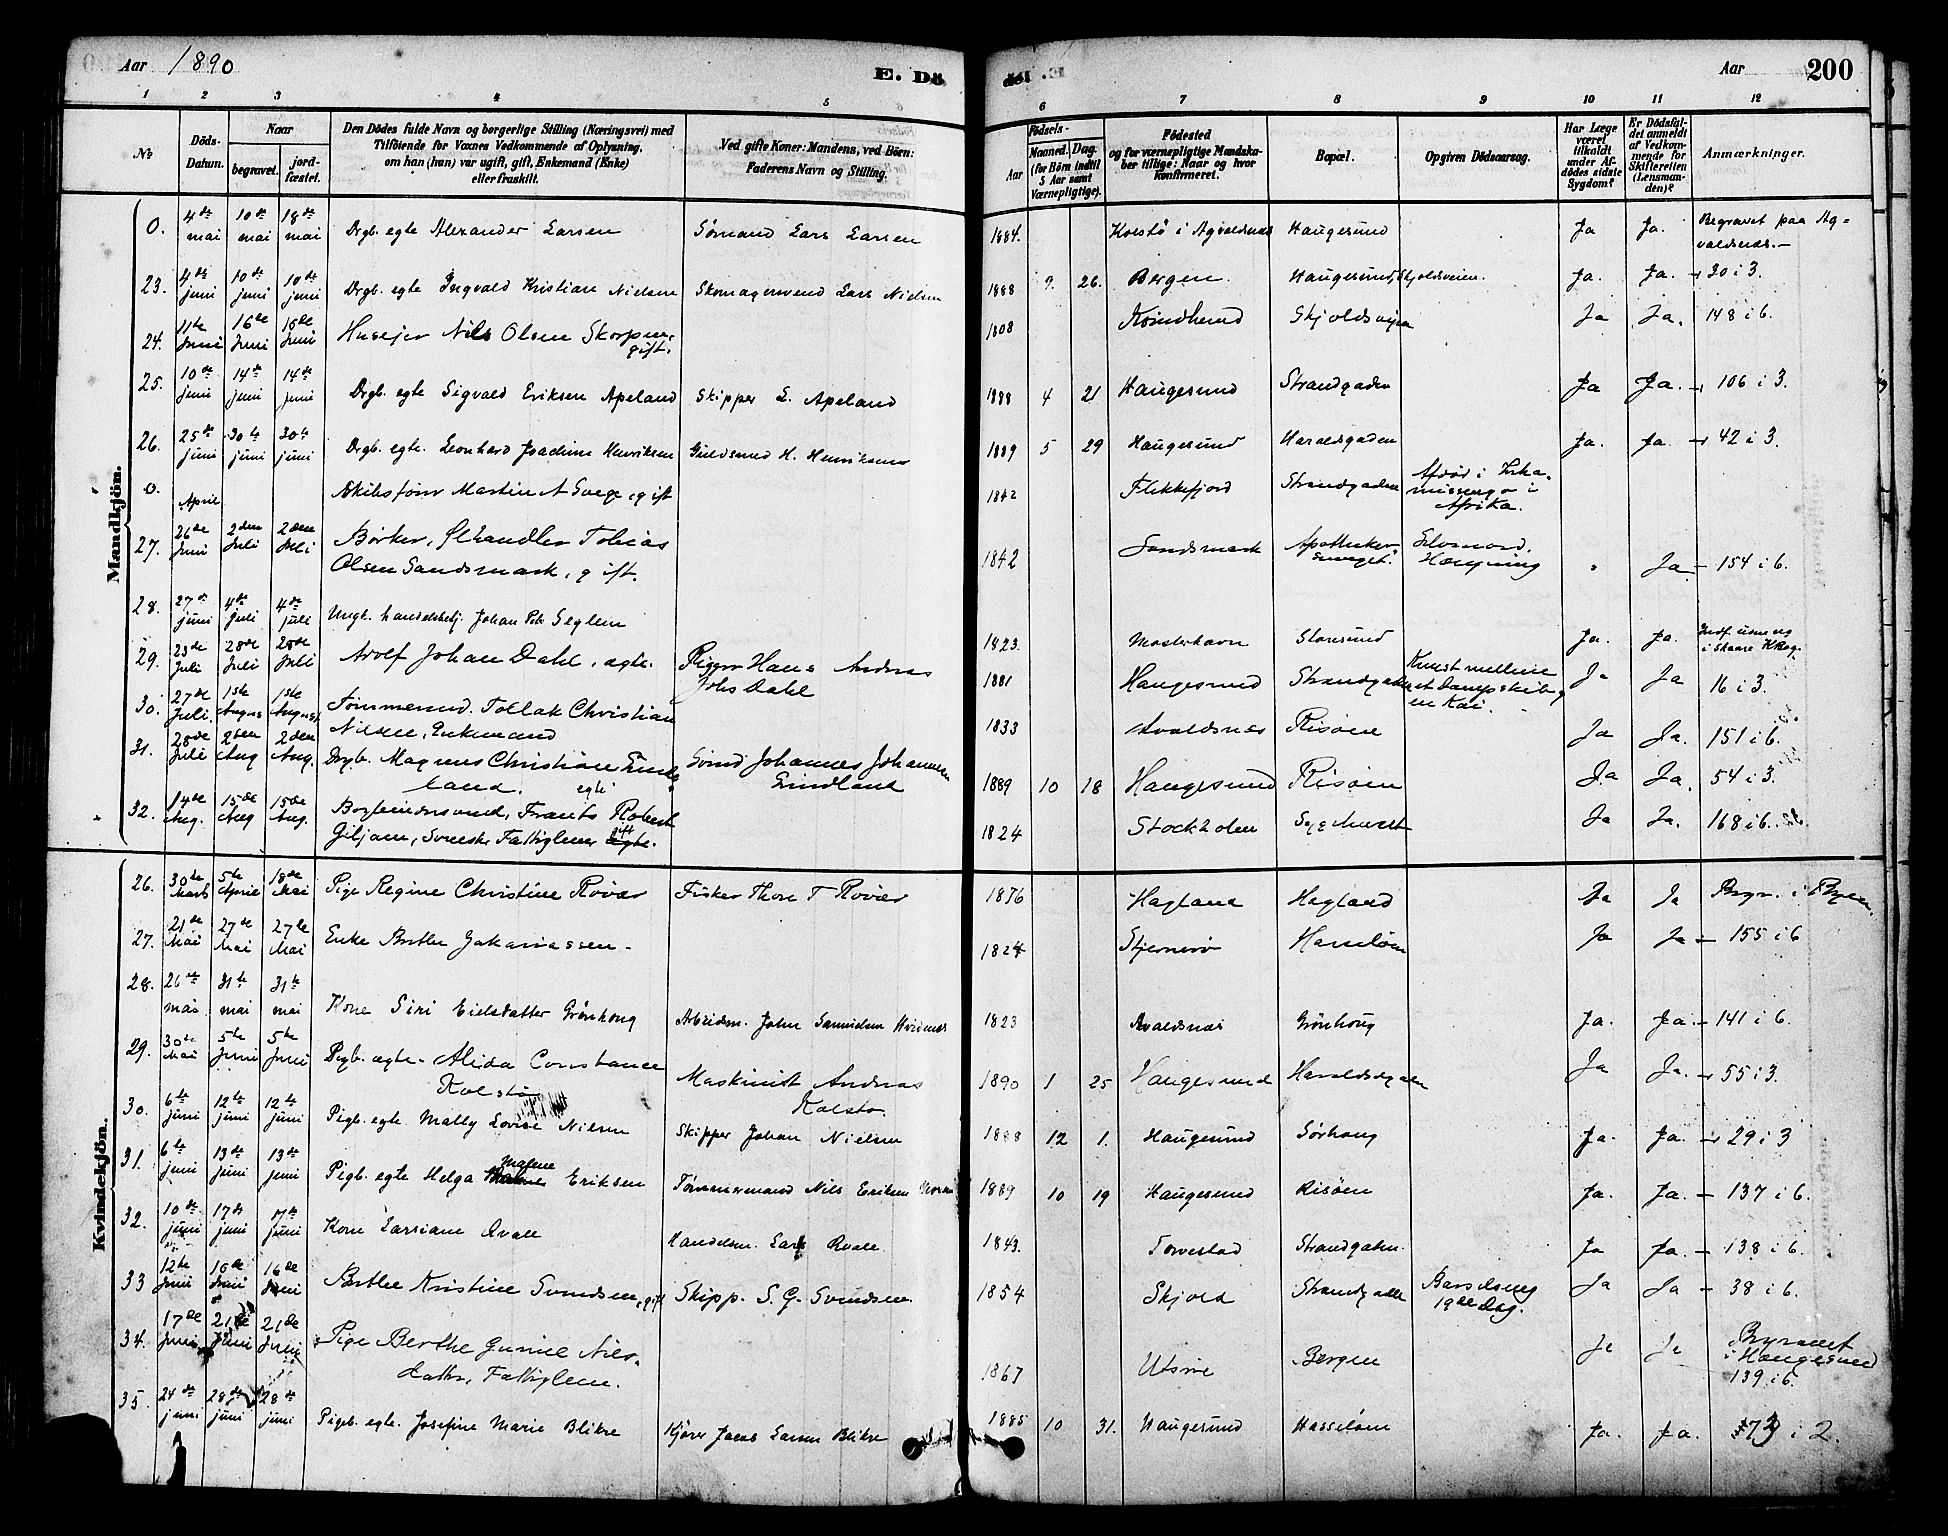 Aar 1890 E. Dö
döt E. Aar 200
1 2 3 4 5 6 7 8 9 10 11 12
No
Döds-
Datum.
Naar
begravet.
jord-
fæstet.
Den Dödes fulde Navn og borgerlige Stilling (Næringsvei) med
Tilföiende for Voxnes Vedkommende af Oplysning,
om han (hun) var ugift, gift, Enkemand (Enke)
eller fraskilt.
Ved gifte Koner: Mandens, ved Börn:
Faderens Navn og Stilling.
Födsels-
Aar
Maaned. Dag.
(for Börn indtil
5 Aar samt
Værnepligtige).
Födested
og for værnepligtige Mandska-
ber tillige: Naar og hvor
konfirmeret.
Bopæl.
Opgiven Dödsaarsag.
Har Læge
været
tilkaldt
under Af-
dödes sidste
Sygdom?
Er Dödsfal-
det anmeldt
af Vedkom-
mende for
Skifteretten
(Lensman-
den)?
Anmærkninger.
Mandkjön.
0. 4de mai 10de mai 18de mai Drgb. egte Alexander Larsen Sømand Lars Larsen 1884. Kolstø i Agvaldsnes Haugesund Ja Ja. Begravet paa Ag-
valdsnes.-
23. 4de juni 10de juni 10de juni Drgb. egte Ingvald Kristian Nielsen Skomagersvend Lars Nielsen 1888 9. 26. Bergen. Haugesund, Skjoldsveien. Ja. Ja. - 30 i 3.
24. 11te Juni 16de Juni 16de Juni Husejer Nils Olsen Skorpen,
gift. 1808 Kvindherred Skjoldsvejen Ja Ja. 148 i 6.
25. 10de juni 14de juni 14de juni Drgb. egte Sigvald Eriksen Apeland Skipper E. Apeland 1888 4 21 Haugesund Strandgaden Ja Ja. - 106 i 3.
26. 25de juni 30te juni 30te juni Drgb. egte. Leonhard Joachim Henriksen Guldsmed H. Henriksen 1889 5 29 Haugesund Haraldsgaden Ja. Ja. - 42 i 3.
0. April Skibsfører Martin A Svege, gift 1842 Flekkefjord Strandgaden
Afrika.
27. 26de Juni 2den Juli 2den Juli Børker,
Olsen Sandsmark, gift. 1842 Sandsmark Selvmord,
Hængning " Ja - 154 i 6.
28. 27de juni 4de juli 4de juli Ungk. handelsbetj. Johan Seglem 1823. Mosterhavn Ja. Ja.
29. 23de Juli 28de Juli 28de Juli Adolf Johan Dahl, ægte. Rigger Hans Andreas
Johs Dahl 1881 Haugesund Strandgaden Knust mellem
et Dampskib og
en Kai. Ja Ja 16 i 3.
30. 27de Juli. 1ste August 1ste August Tømmermd. Tollak Christian
Nilsen, Enkemand 1833 Avaldsnes Risøen Ja Ja. 151 i 6.
31. 28de Juli 2den Aug 2den Aug. Drgb. Magnus Christian Lind-
land. egte Svend Johannes Johannesen
Lindland 1889 10 18 Haugesund Risøen Ja Ja. 54 i 3.
32. 14de Aug. 15de Aug 15de Aug. Frants Robert
Giljam, Svensk, Fattiglem, gift 1824 Stockholm Ja Ja. 168 i 6.
Kvindekjön.
26. 30te Marts 5te April 18de Mai Pige Regine Christine Røvær Fisker Thore T Røvær 1876 Hagland Hagland Ja Ja Begr. i Byen.
27. 21de Mai 27de Mai 27de Mai Enke Berthe Zakariassen. 1824 Stjernerø Hasseløen Ja Ja - 155 i 6
28. 26de mai 31te mai 31te mai Kone Siri Eielsdatter Grønhoug Arbeidsm. John Samuelsen Hvidenes 1823 Avaldsnes Grønhoug Ja. Ja. - 141 i 6.
29. 30te Mai 5te Juni 5te Juni Pigb. ægte. Alida Constance
Kolstø Maskinist Andreas
Kolstø. 1890 1 25 Haugesund Haraldsgaden Ja Ja. - 55 i 3.
30. 6te juni 12te juni 12te juni Pigb. egte Mally Lovise Nilsen Skipper Johan Nielsen 1888 12 1. Haugesund Sørhaug Ja. Ja. - 29 i 3
31. 6te juni 13de juni 13de juni Pigb. egte Helga Malene Eriksen Tømmermand Nils Eriksen 1889 10 19 Haugesund Risøen Ja. Ja. - 137 i 6.
32. 10de juni 17de juni 17de juni Kone Larsiane Qvale Handelsm. Lars Qvale. 1843. Torvestad Strandgaten. Ja Ja. - 138 i 6.
33 12te Juni 16de Juni 16de Juni Berthe Kristine Svendsen, gift Skipp. S. G. Svendsen 1854 Skjold Strandgaden Barselseng
19de Dag. Ja Ja - 38 i 6.
34. 17de Juni 21de Juni 21de Juni Pige Berthe Gurine Nils-
datter, Fattiglem. 1867 Utsire Bergen Ja Ja Begravet
i Haugesund
139 i 6.
35. 24de juni 28de juni 28de juni Pigeb. egte. Josefine Marie Blikre Kjører Jacob Larsen Blikre 1885 10 31. Haugesund Hasseløen Ja. Ja. 73 i 2.